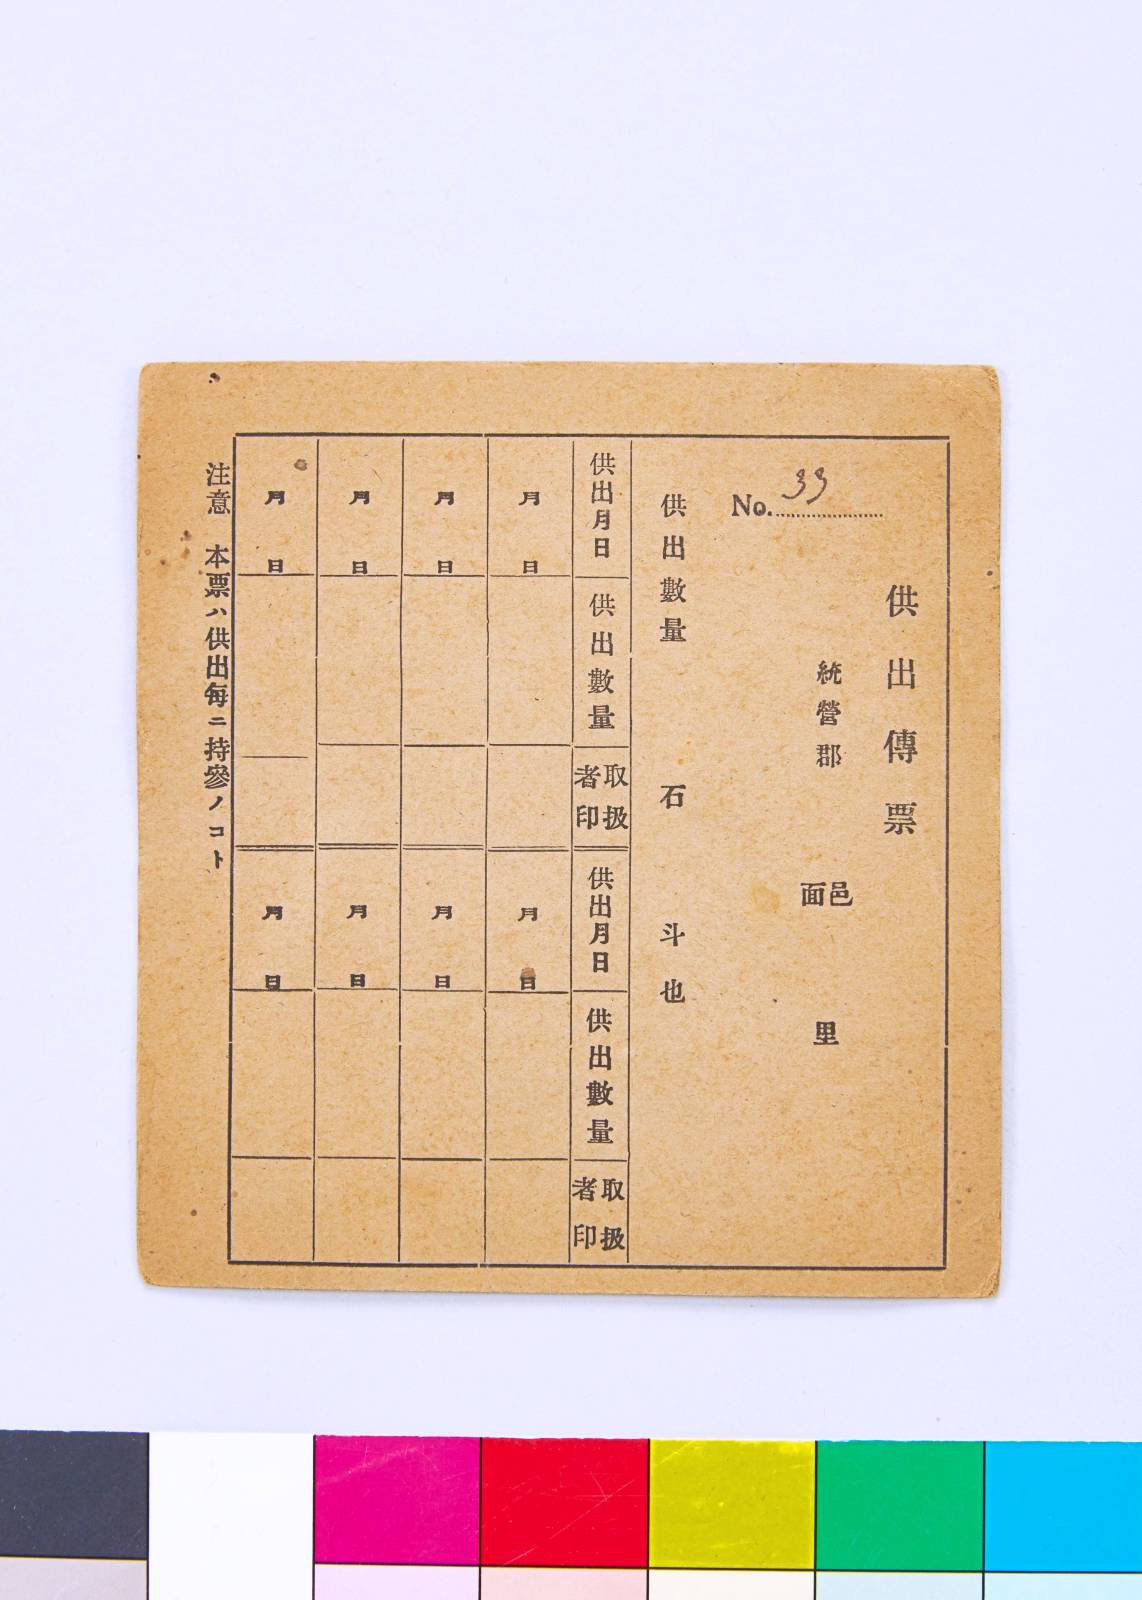 供出傳票
統營郡
邑面
里
No. 33
供出數量 石 斗也
供出月日 供出數量 取扱者印 供出月日 供出數量 取扱者印
月 日 月 日
月 日 月 日
月 日 月 日
月 日 月 日
注意 本票ハ供出每ニ持參ノコト